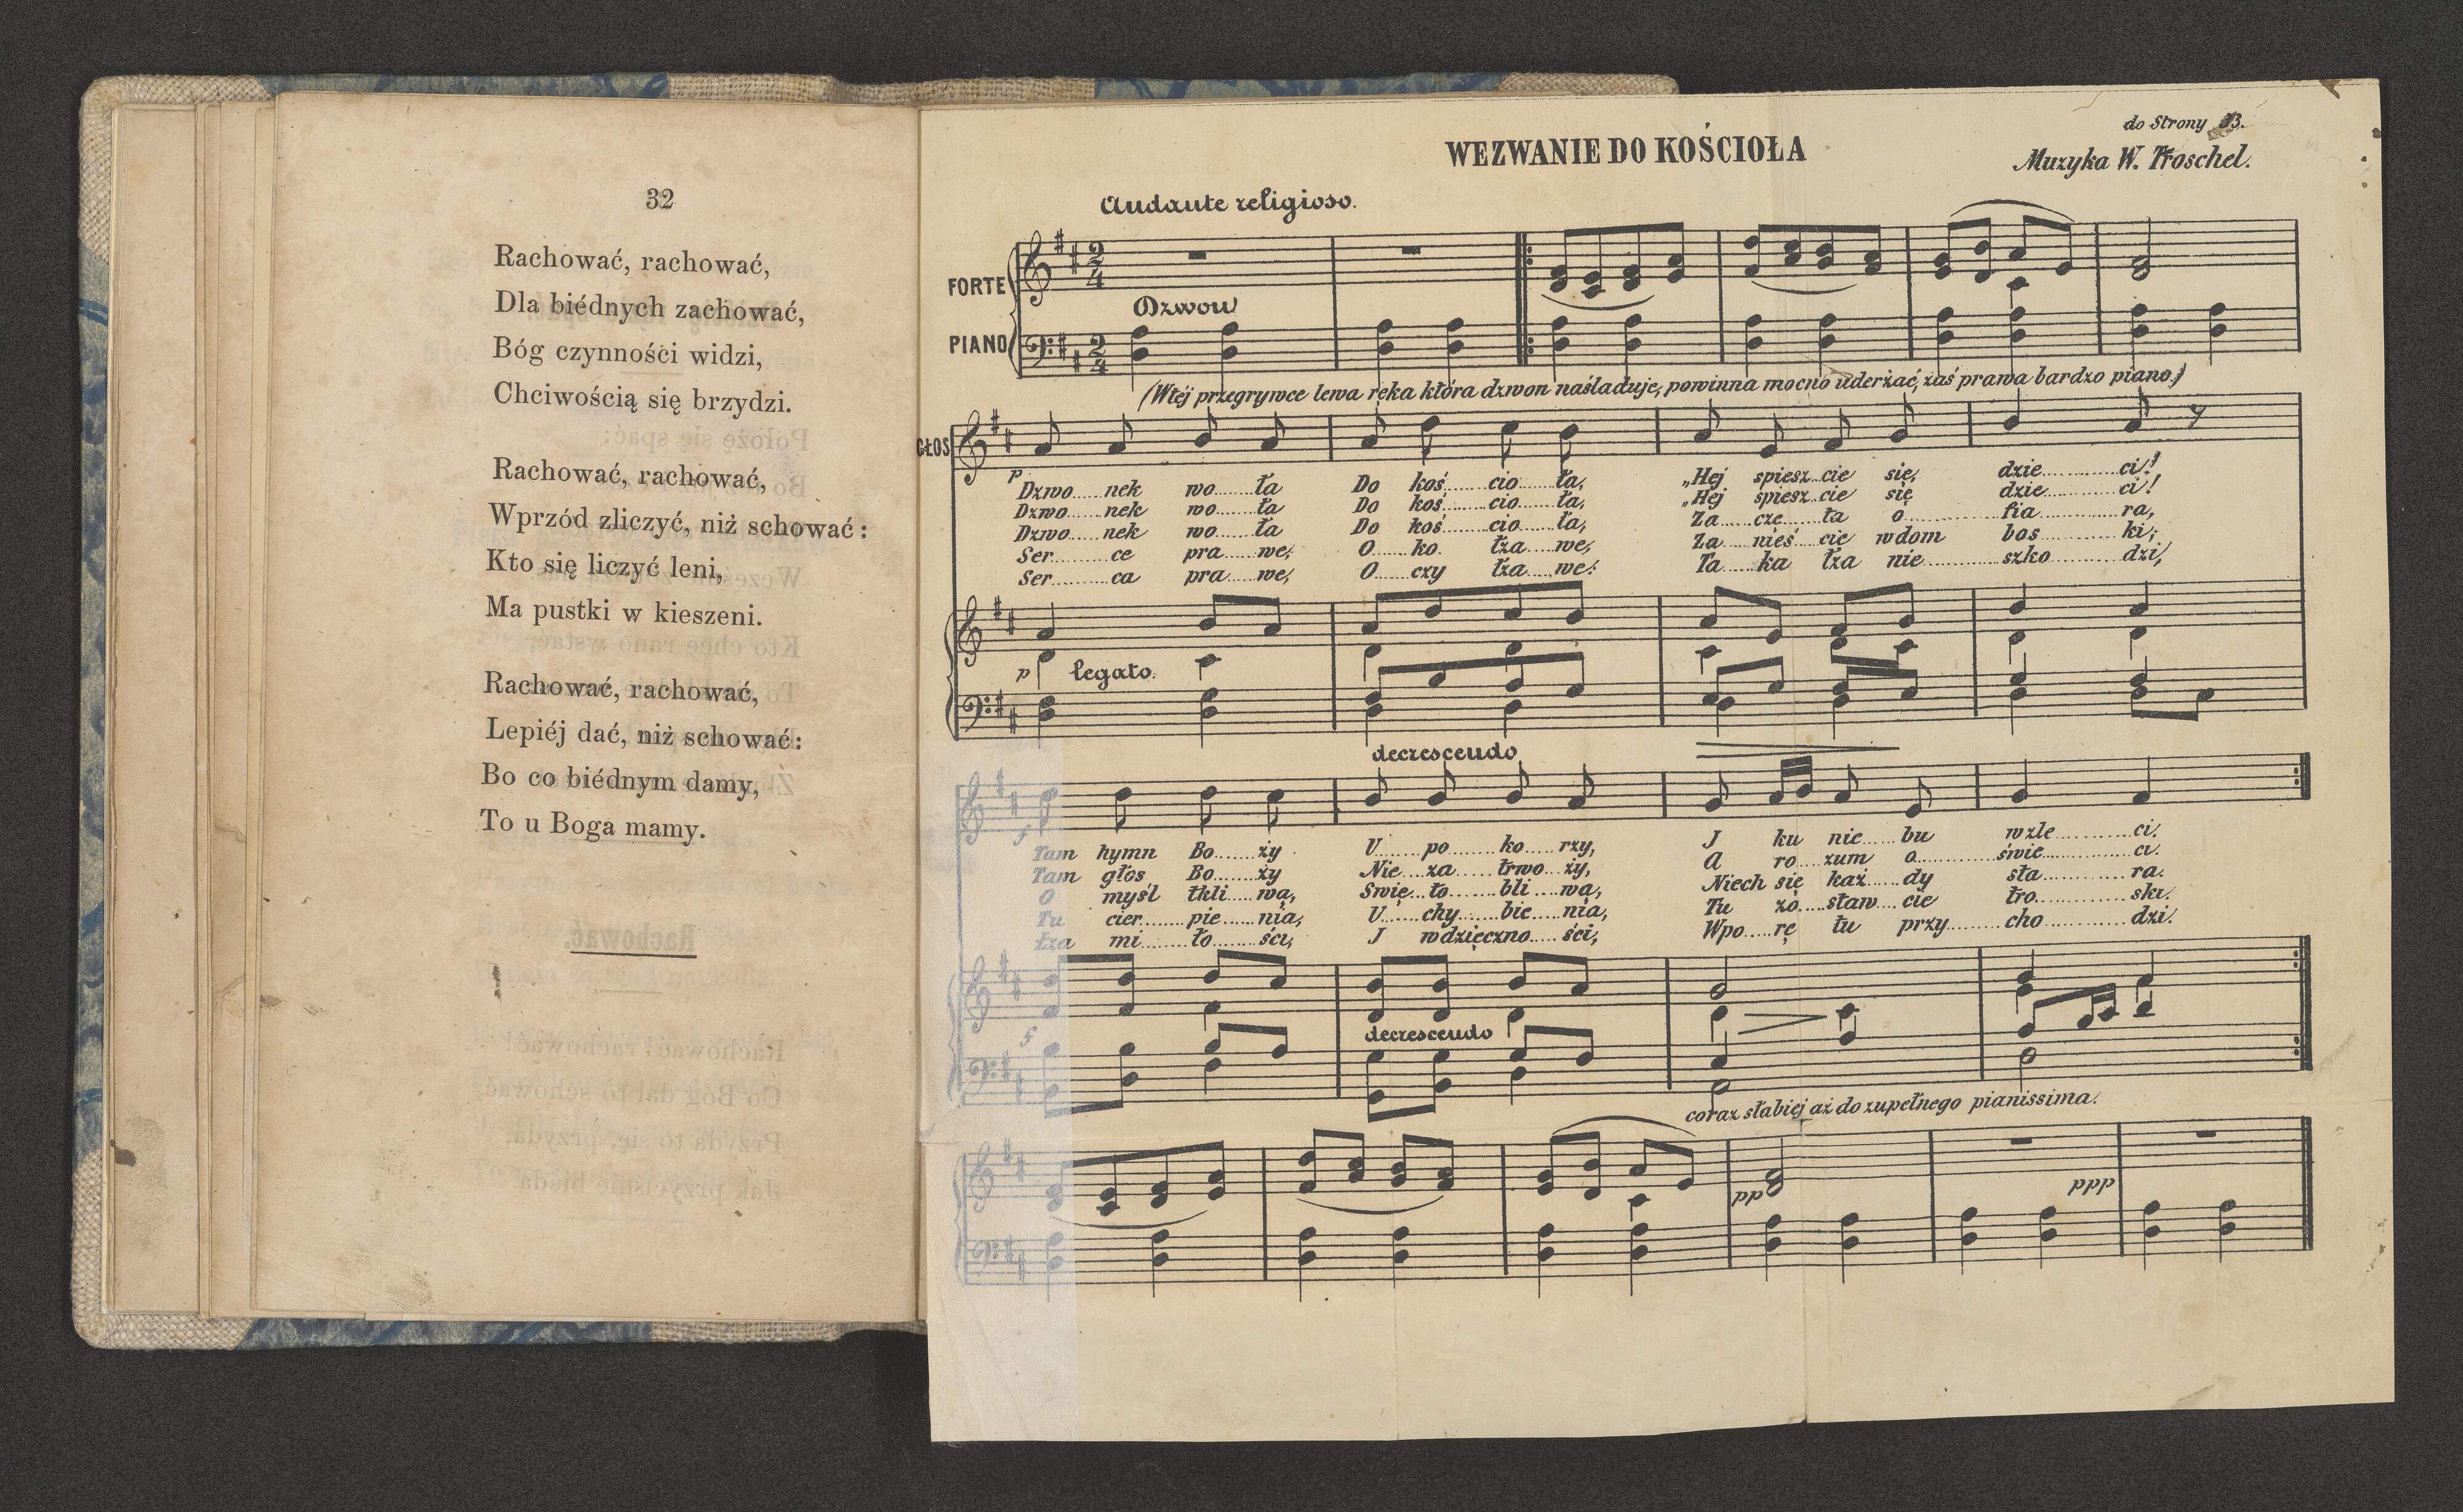 32
Rachować, rachować,
Dla biédnych zachować,
Bóg czynności widzi,
Chciwością się brzydzi.
Rachować, rachować,
Wprzód zliczyć, niż schować:
Kto się liczyć leni,
Ma pustki w kieszeni.
Rachować, rachować,
Lepiéj dać, niż schować:
Bo co biédnym damy,
To u Boga mamy.
do Strony
WEZWANIE DO KOŚCIOŁA
Muzyka W. Troschel.
Andante religioso.
FORTE
PIANO
2 4
Dzwon
2 4
(Wtéj przegrywce lewa ręka która dzwon naśladuje, powinna mocno uderzać, zaś prawa bardzo piano.)
GŁOS
p
Dzwo......nek wo......ła Do koś......cio......ła, „Hej spiesz...cie się, dzie............ci!
Dzwo......nek wo......ła Do koś......cio......ła, „Hej spiesz...cie się dzie............ci!
Dzwo......nek wo......ła Do koś......cio......ła, Za......czę......ta o............fia............ra,
Ser............ce pra......we, O......ko łza......we, Za......nieś...cie wdom bos............ki;
Ser............ca pra......we, O......czy łza......we: Ta......ka łza nie............szko............dzi,
p legato.
decrescendo
f
Tam hymn Bo......ży U......po......ko......rzy, J ku nie......bu wzle............ci.
Tam głos Bo......ży Nie......za......trwo...ży, A ro...zum o............świe............ci.
O myśl tkli......wa, Świę...to......bli......wa, Niech się każ......dy sta............ra.
Tu cier......pie......nia, U......chy......bie......nia, Tu zo......staw...cie tro............ski.
Łza mi......ło......ści, J wdzięczno......ści, Wpo......rę tu przy......cho............dzi.
f
decrescendo
coraz słabiej aż do zupełnego pianissima.
pp
ppp